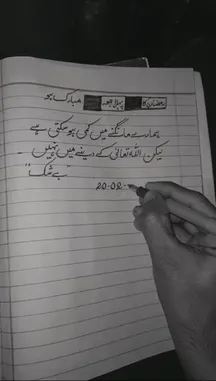 رمضان کا پہلا جمعہ مبارک ہو
ہمارے مانگنے میں کمی ہو سکتی ہے
لیکن اللہ تعالیٰ کے دینے میں نہیں۔
"بے شک"
20-02-